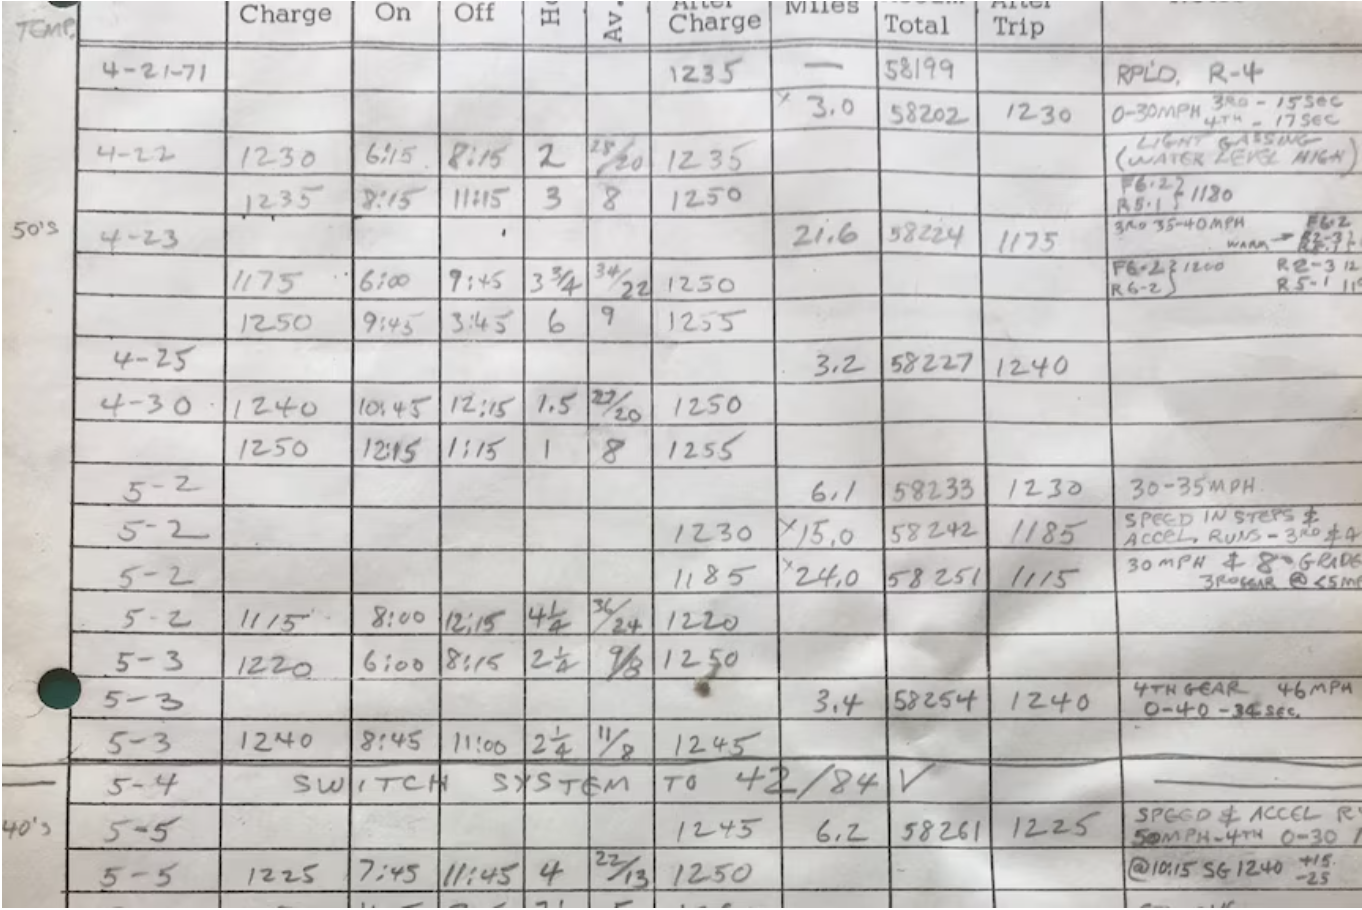 TEMP. Charge On Off Ho Av. After Charge Miles Total After Trip
4-21-71 1235 — 58199 RPL'D. R-4
x 3.0 58202 1230 0-30MPH 3RD - 15SEC
4TH - 17SEC
4-22 1230 6:15 8:15 2 28/20 1235 LIGHT GASSING
(WATER LEVEL HIGH)
1235 8:15 11:15 3 8 1250 F6-2} 1180
R5-1
50'S 4-23 21.6 58224 1175 3RD 35-40MPH F6-2
WARM → R2-3
1175 6:00 9:45 3 3/4 34/22 1250 F6-2} 1200 R2-3 12
R6-2} R5-1 115
1250 9:45 3:45 6 9 1255
4-25 3.2 58227 1240
4-30 1240 10:45 12:15 1.5 22/20 1250
1250 12:15 1:15 1 8 1255
5-2 6.1 58233 1230 30-35MPH
5-2 1230 x15.0 58242 1185 SPEED IN STEPS &
ACCEL. RUNS - 3RD & 4
5-2 1185 x24.0 58251 1115 30 MPH & 8% GRADE
3RD GEAR @ <5MP
5-2 1115 8:00 12:15 4 1/4 36/24 1220
5-3 1220 6:00 8:15 2 1/4 9/8 1250
5-3 3.4 58254 1240 4TH GEAR 46MPH
0-40-34 SEC.
5-3 1240 8:45 11:00 2 1/4 11/8 1245
5-4 SWITCH SYSTEM TO 42/84 V
40'S 5-5 1245 6.2 58261 1225 SPEED & ACCEL R
50MPH-4TH 0-30
5-5 1225 7:45 11:45 4 22/13 1250 @10:15 SG 1240 +15
-25